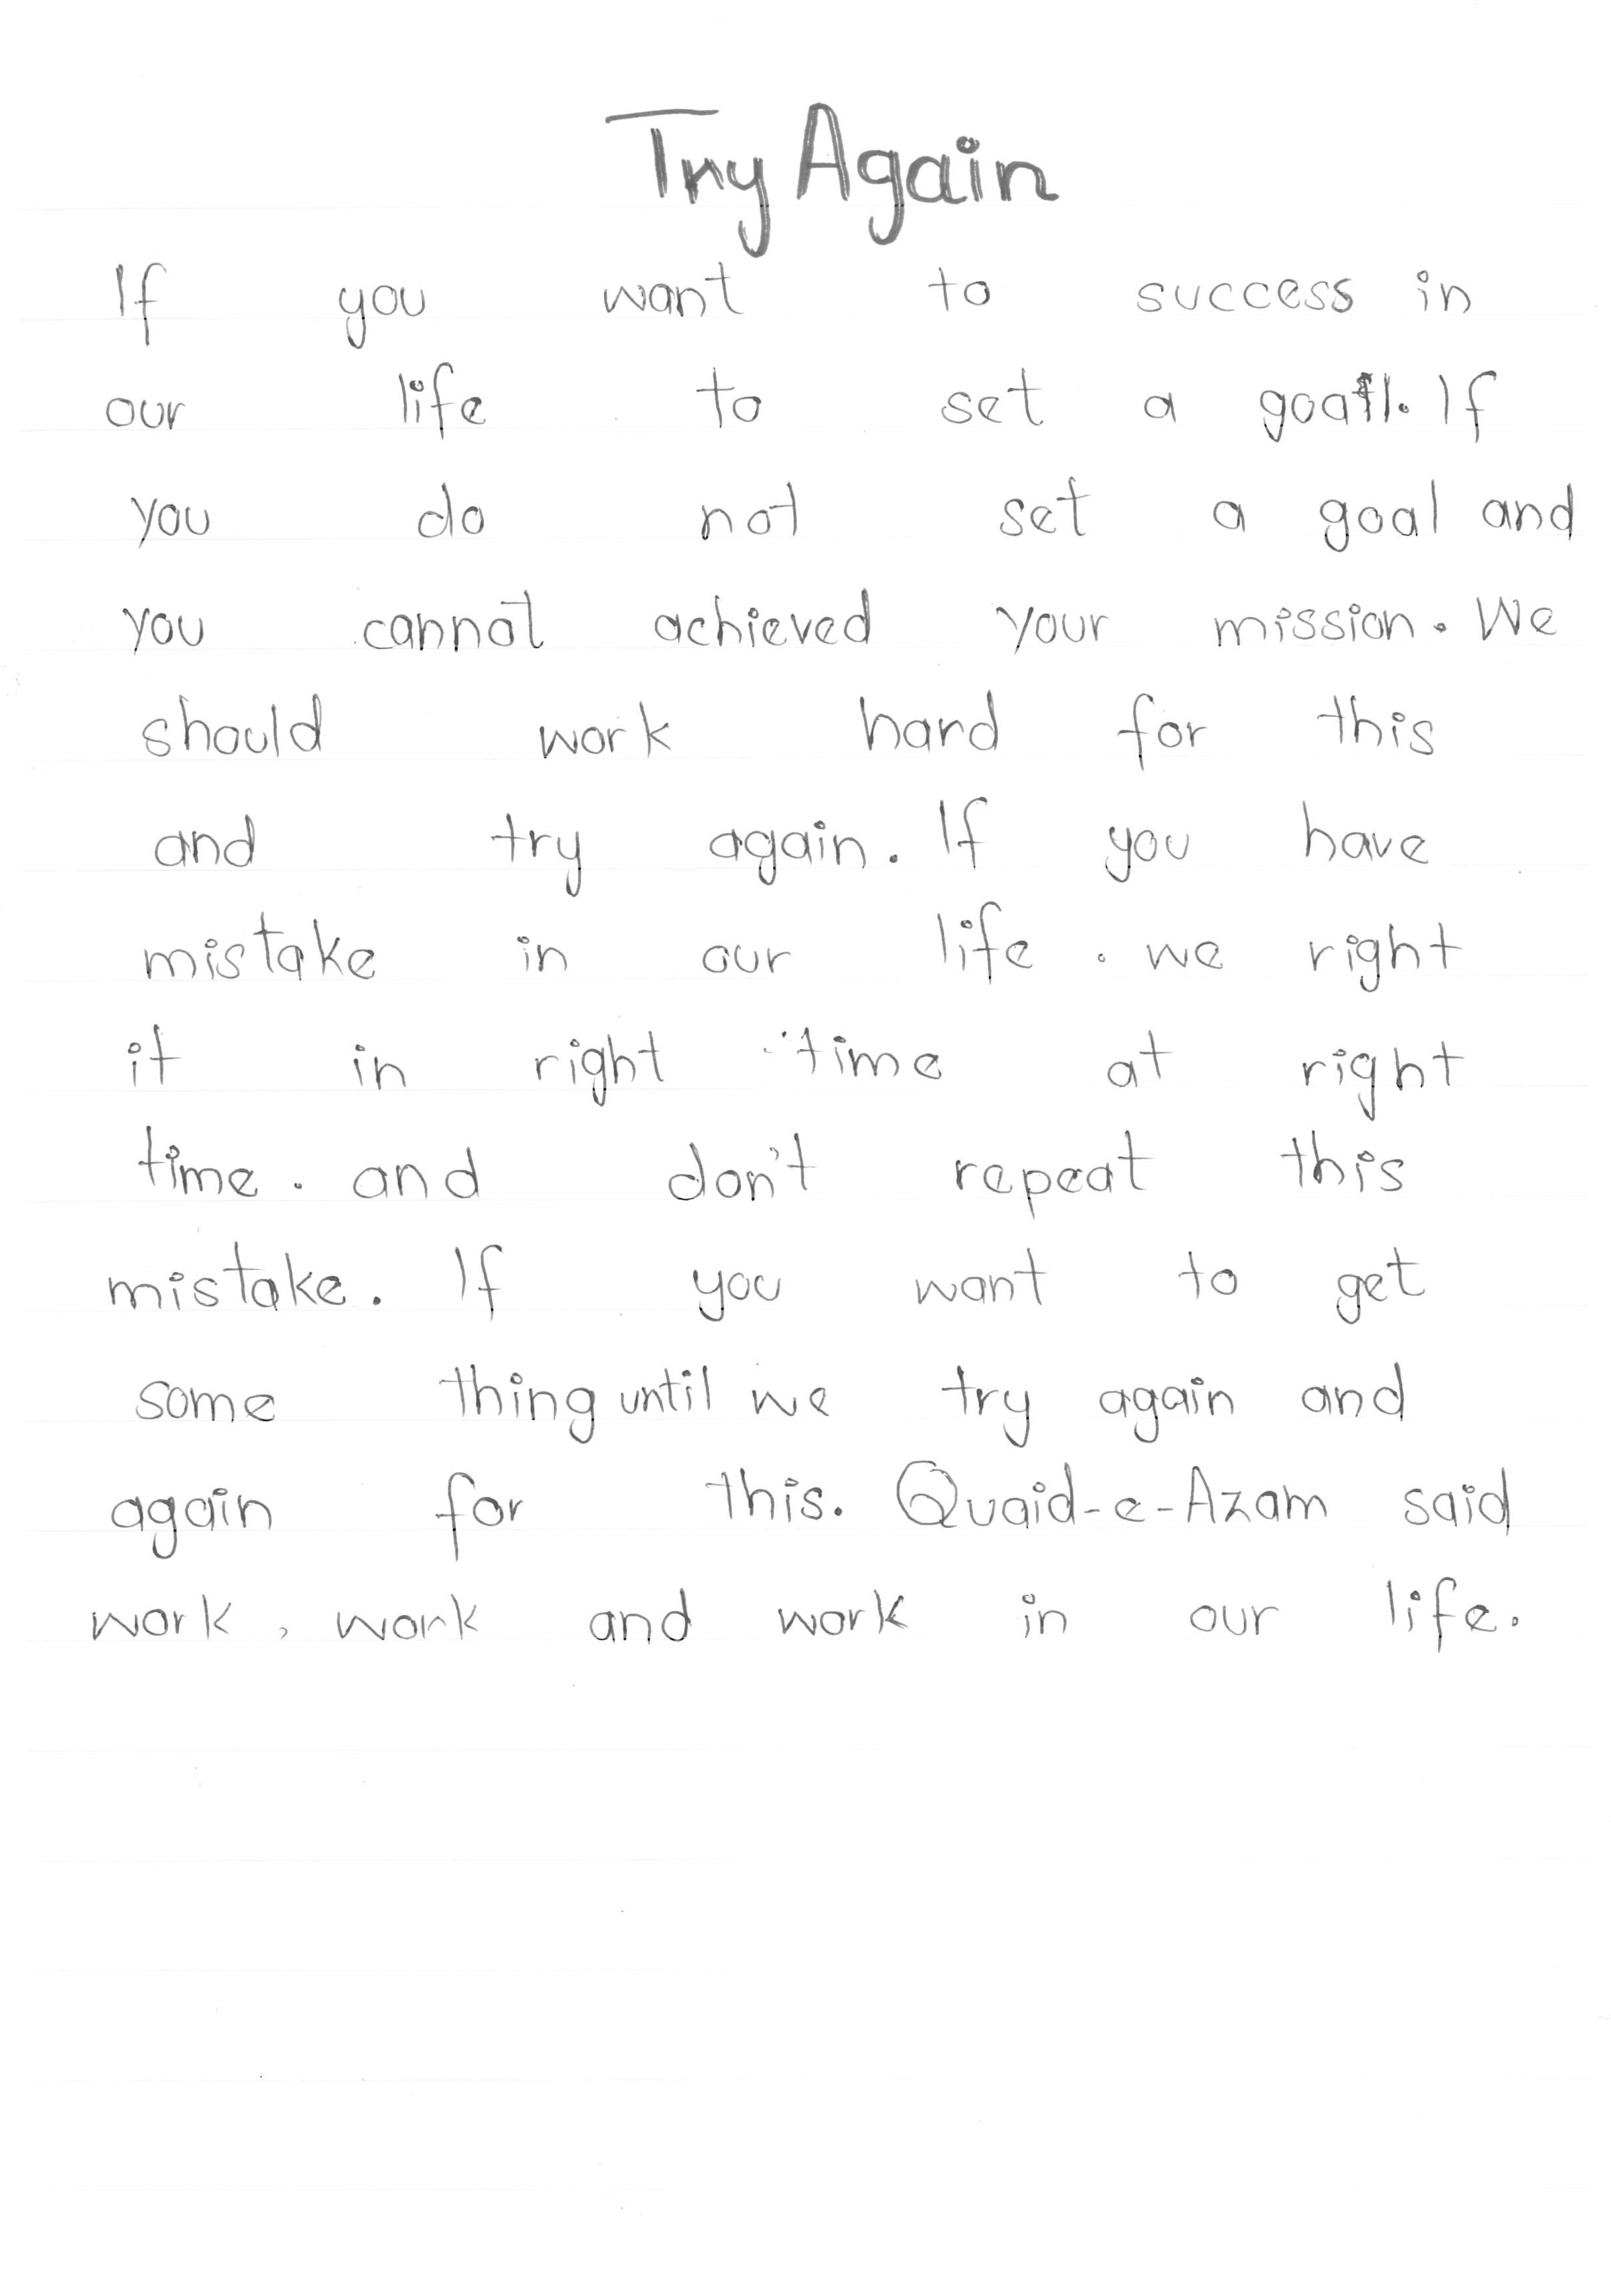 Try Again
If you want to success in
our life to set a goal. If
you do not set a goal and
you cannot achieved your mission. We
should work hard for this
and try again. If you have
mistake in our life. we right
it in right time at right
time. and don't repeat this
mistake. If you want to get
some thing until we try again and
again for this. Quaid-e-Azam said
work, work and work in our life.